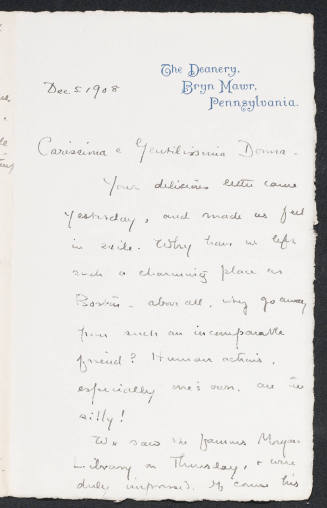 The Deanery,
Bryn Mawr,
Pennsylvania.
Dec 5 1908
Carissima e Gentilissima Donna -
Your delicious letter came
yesterday, and made us feel
in exile. Why have we left
such a charming place as
Boston - above all, why go away
from such an incomparable
friend? Human actions,
especially one's own, are too
silly!
We saw the famous Morgan
Library on Thursday, & were
duly impressed. Of course his